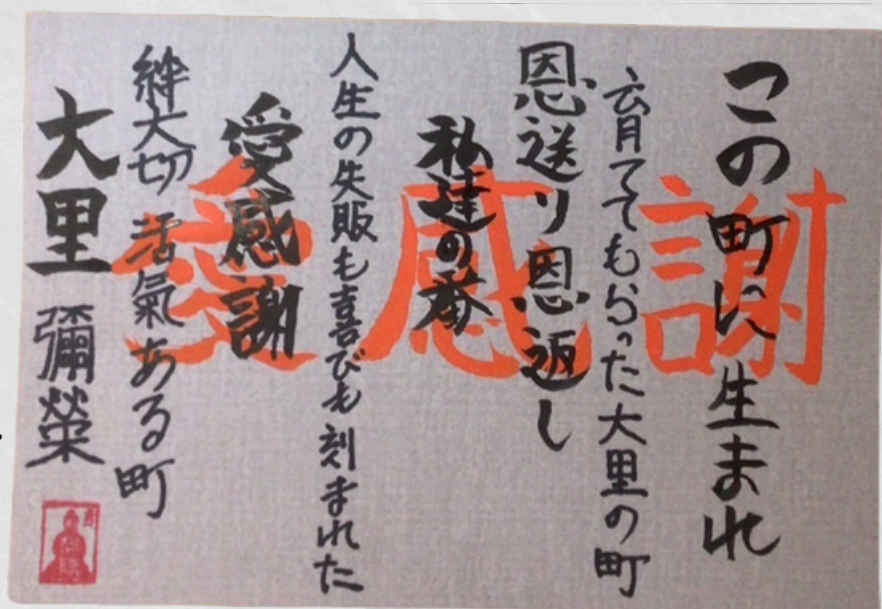 この町に生まれ
育ててもらった大里の町
恩送り恩返し
私達の番
人生の失敗も喜びも刻まれた
愛感謝
絆大切 活氣ある町
大里 彌榮
愛感謝